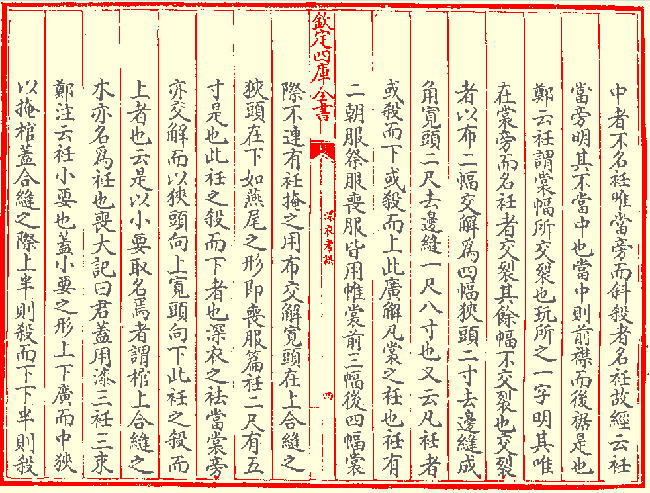 中者不名衽唯當旁而斜殺者名衽故經云衽
當旁明其不當中也當中則前襟而後裾是也
鄭云衽謂裳幅所交裂也玩所之一字明其唯
在裳旁而名衽者交裂其餘幅不交裂也交裂
者以布二幅交解為四幅狹頭二寸去邊縫成
角寬頭二尺去邊縫一尺八寸也又云凡衽者
或殺而下或殺而上此廣解凡裳之衽也衽有
二朝服祭服喪服皆用帷裳前三幅後四幅裳
欽定四庫全書
深衣考誤
四
際不連有衽掩之用布交解寬頭在上合縫之
狹頭在下如燕尾之形即喪服篇衽二尺有五
寸是也此衽之殺而下者也深衣之袪當裳旁
亦交解而以狹頭向上寬頭向下此衽之殺而
上者也云是以小要取名焉者謂棺上合縫之
木亦名為衽也喪大記曰君蓋用漆三衽三束
鄭注云衽小要也蓋小要之形上下廣而中狹
以掩棺蓋合縫之際上半則殺而下下半則殺